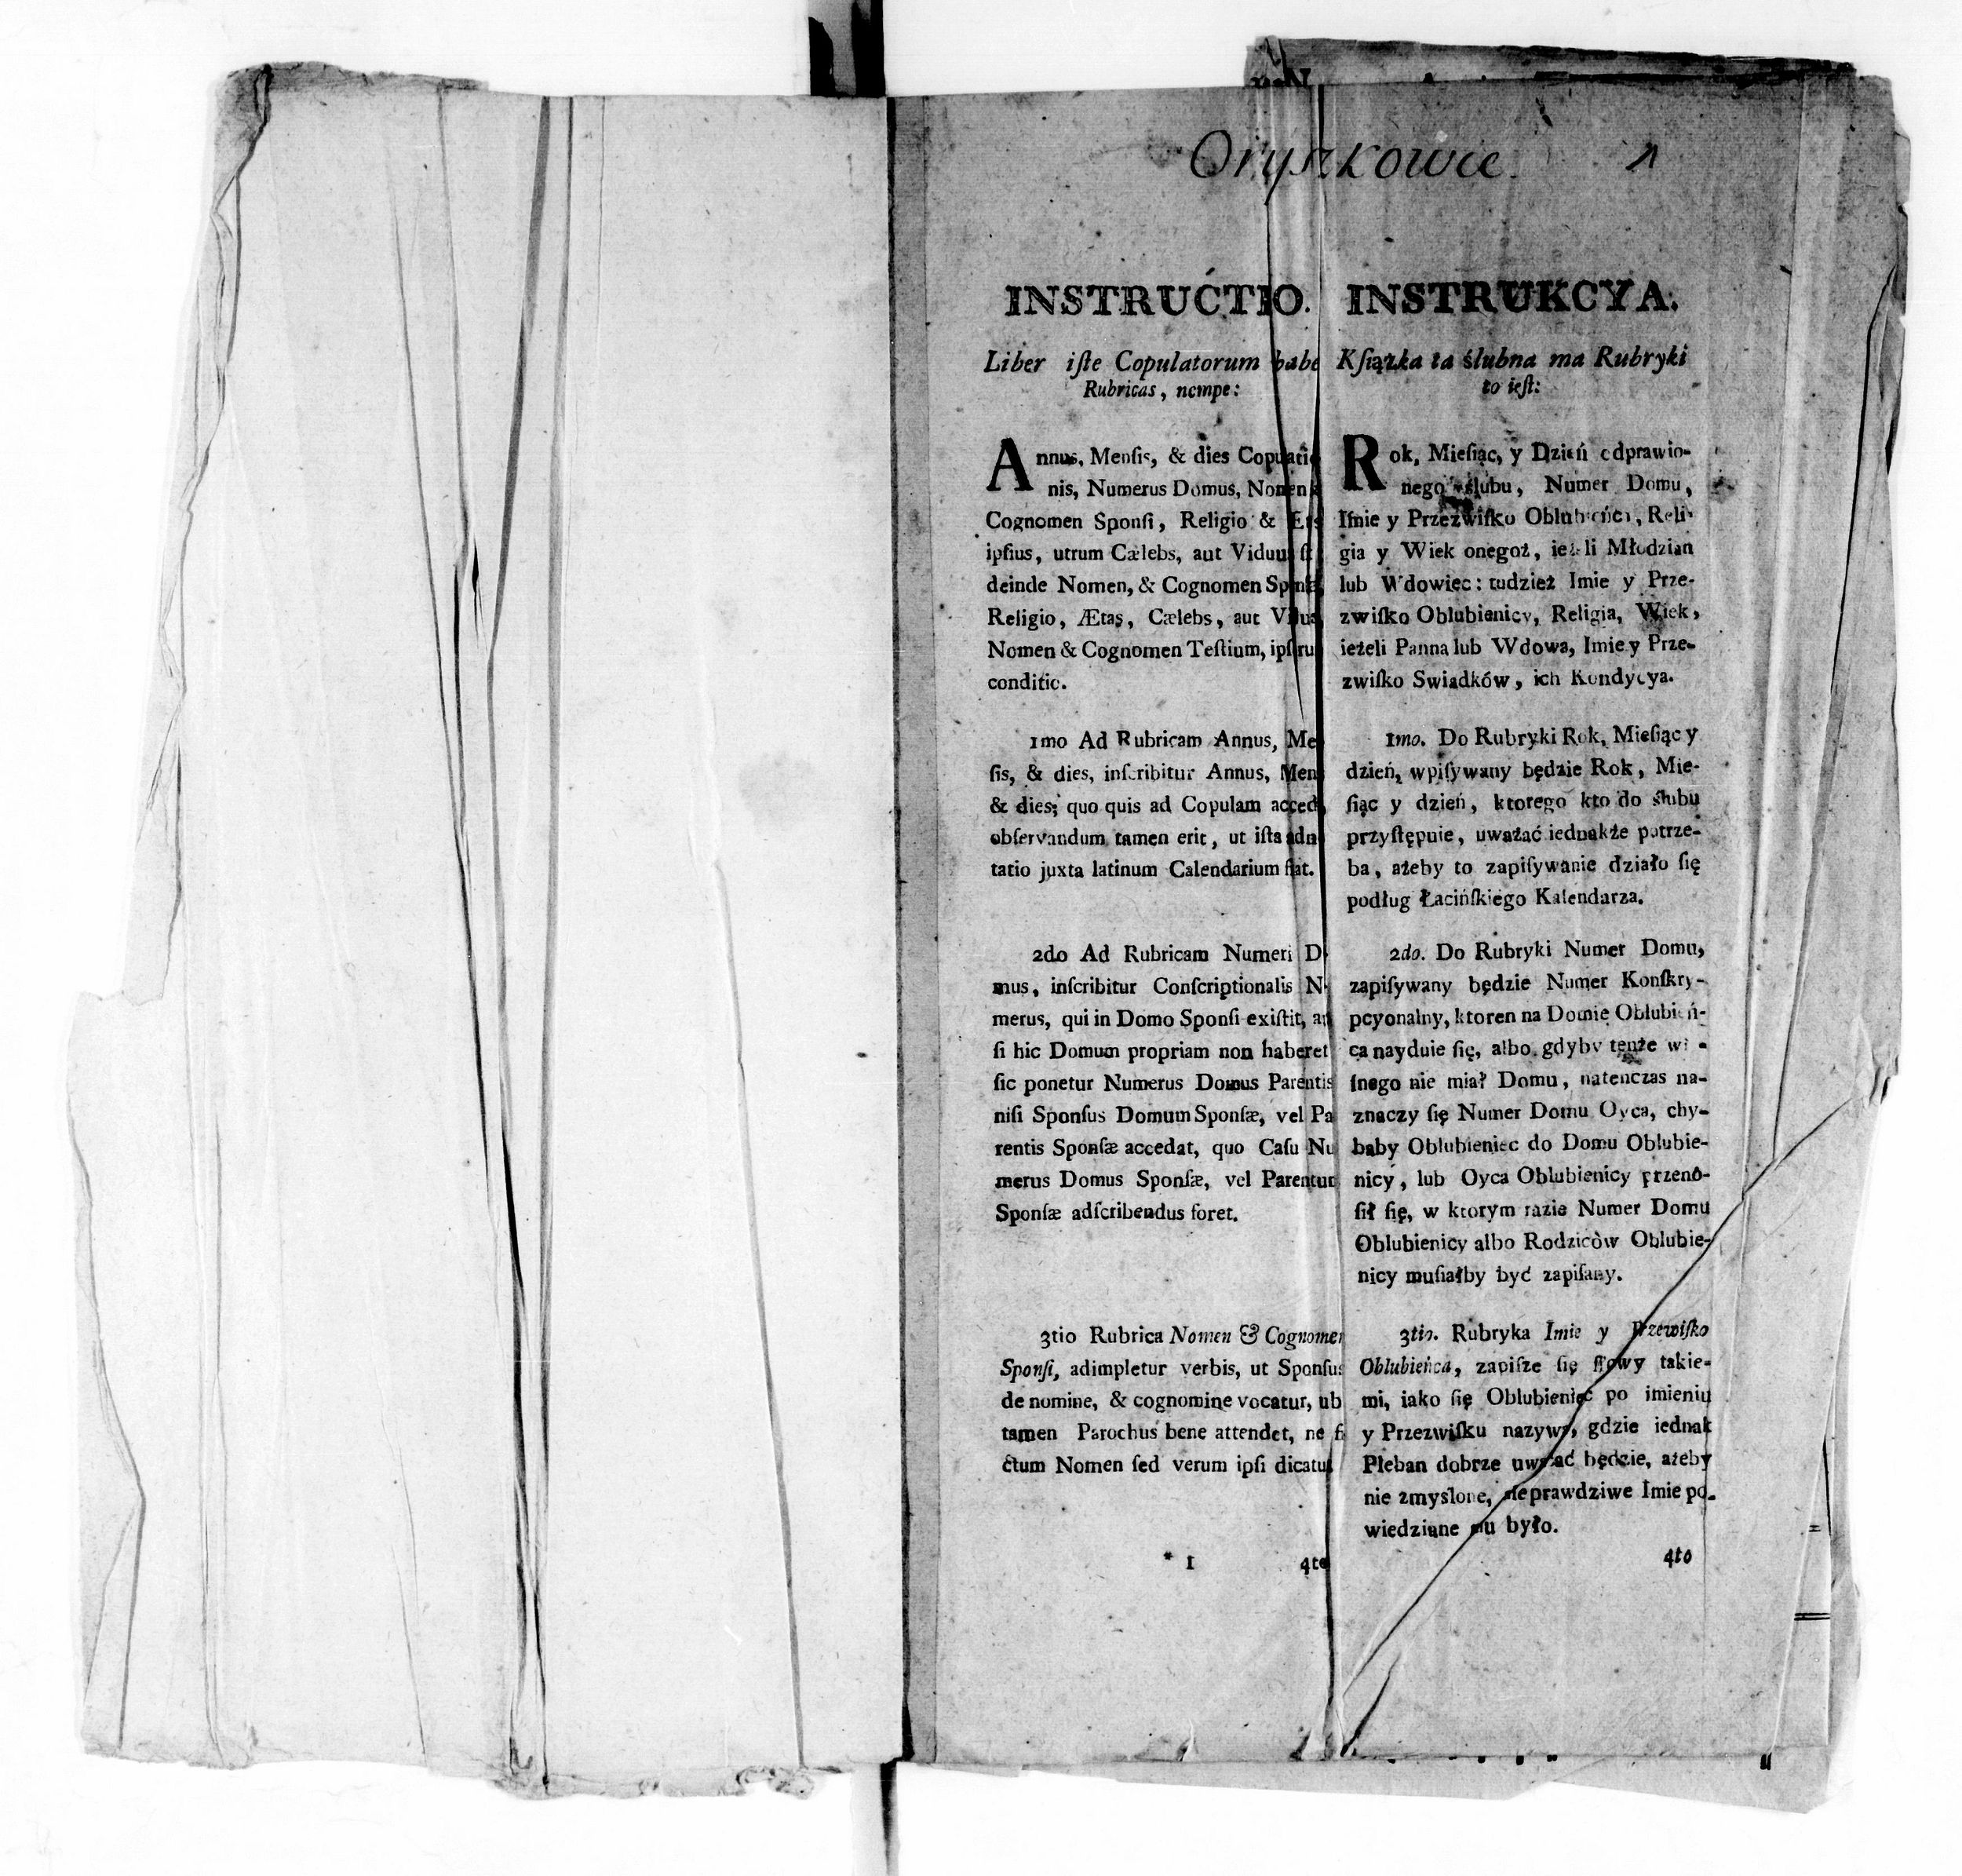 Oryszkowce.
1
INSTRUCTIO.
Liber iſte Copulatorum habe
Rubricas, nempe:
Annus, Menſis, & dies Copulatio
nis, Numerus Domus, Nomen &
Cognomen Sponſi, Religio & Ætas
ipſius, utrum Cælebs, aut Viduus ſit
deinde Nomen, & Cognomen Sponſæ,
Religio, Ætas, Cælebs, aut Vidua
Nomen & Cognomen Teſtium, ipſoru
conditio.
1mo Ad Rubricam Annus, Me
ſis, & dies, inſcribitur Annus, Menſ
& dies; quo quis ad Copulam acced
obſervandum tamen erit, ut iſta adn
tatio juxta latinum Calendarium fiat.
2do Ad Rubricam Numeri D
mus, inſcribitur Conſcriptionalis N
merus, qui in Domo Sponſi exiſtit, a
ſi hic Domum propriam non haberet
ſic ponetur Numerus Domus Parentis
niſi Sponſus Domum Sponſæ, vel Pa
rentis Sponſæ accedat, quo Caſu Nu
merus Domus Sponſæ, vel Parentum
Sponſæ adſcribendus foret.
3tio Rubrica Nomen & Cognomen
Sponſi, adimpletur verbis, ut Sponſus
de nomine, & cognomine vocatur, ub
tamen Parochus bene attendet, ne fi
ctum Nomen ſed verum ipſi dicatur
* 1 4to
INSTRUKCYA.
Kſiążka ta ślubna ma Rubryki
to ieſt:
Rok, Mieſiąc, y Dzień odprawio-
nego ślubu, Numer Domu,
Imie y Przezwiſko Oblubieńca, Reli-
gia y Wiek onegoż, ieżeli Młodzian
lub Wdowiec: tudzież Imie y Prze-
zwiſko Oblubienicy, Religia, Wiek,
ieżeli Panna lub Wdowa, Imie y Prze-
zwiſko Swiadków, ich Kondycya.
1mo. Do Rubryki Rok, Mieſiąc y
dzień, wpiſywany będzie Rok, Mie-
ſiąc y dzień, ktorego kto do ślubu
przyſtępuie, uważać iednakże potrze-
ba, ażeby to zapiſywanie działo ſię
podług Łacińſkiego Kalendarza.
2do. Do Rubryki Numer Domu,
zapiſywany będzie Numer Konſkry-
pcyonalny, ktoren na Domie Oblubień-
ca nayduie ſię, albo gdyby tenże wła-
ſnego nie miał Domu, natenczas na-
znaczy ſię Numer Domu Oyca, chy-
baby Oblubieniec do Domu Oblubie-
nicy, lub Oyca Oblubienicy przeno-
ſił ſię, w ktorym razie Numer Domu
Oblubienicy albo Rodziców Oblubie-
nicy muſiałby być zapiſany.
3tio. Rubryka Imie y Przezwiſko
Oblubieńca, zapiſze ſię ſłowy takie-
mi, iako ſię Oblubieniec po imieniu
y Przezwiſku nazywa, gdzie iednak
Pleban dobrze uważać będzie, ażeby
nie zmyslone, ale prawdziwe Imie po-
wiedziane mu było.
4to